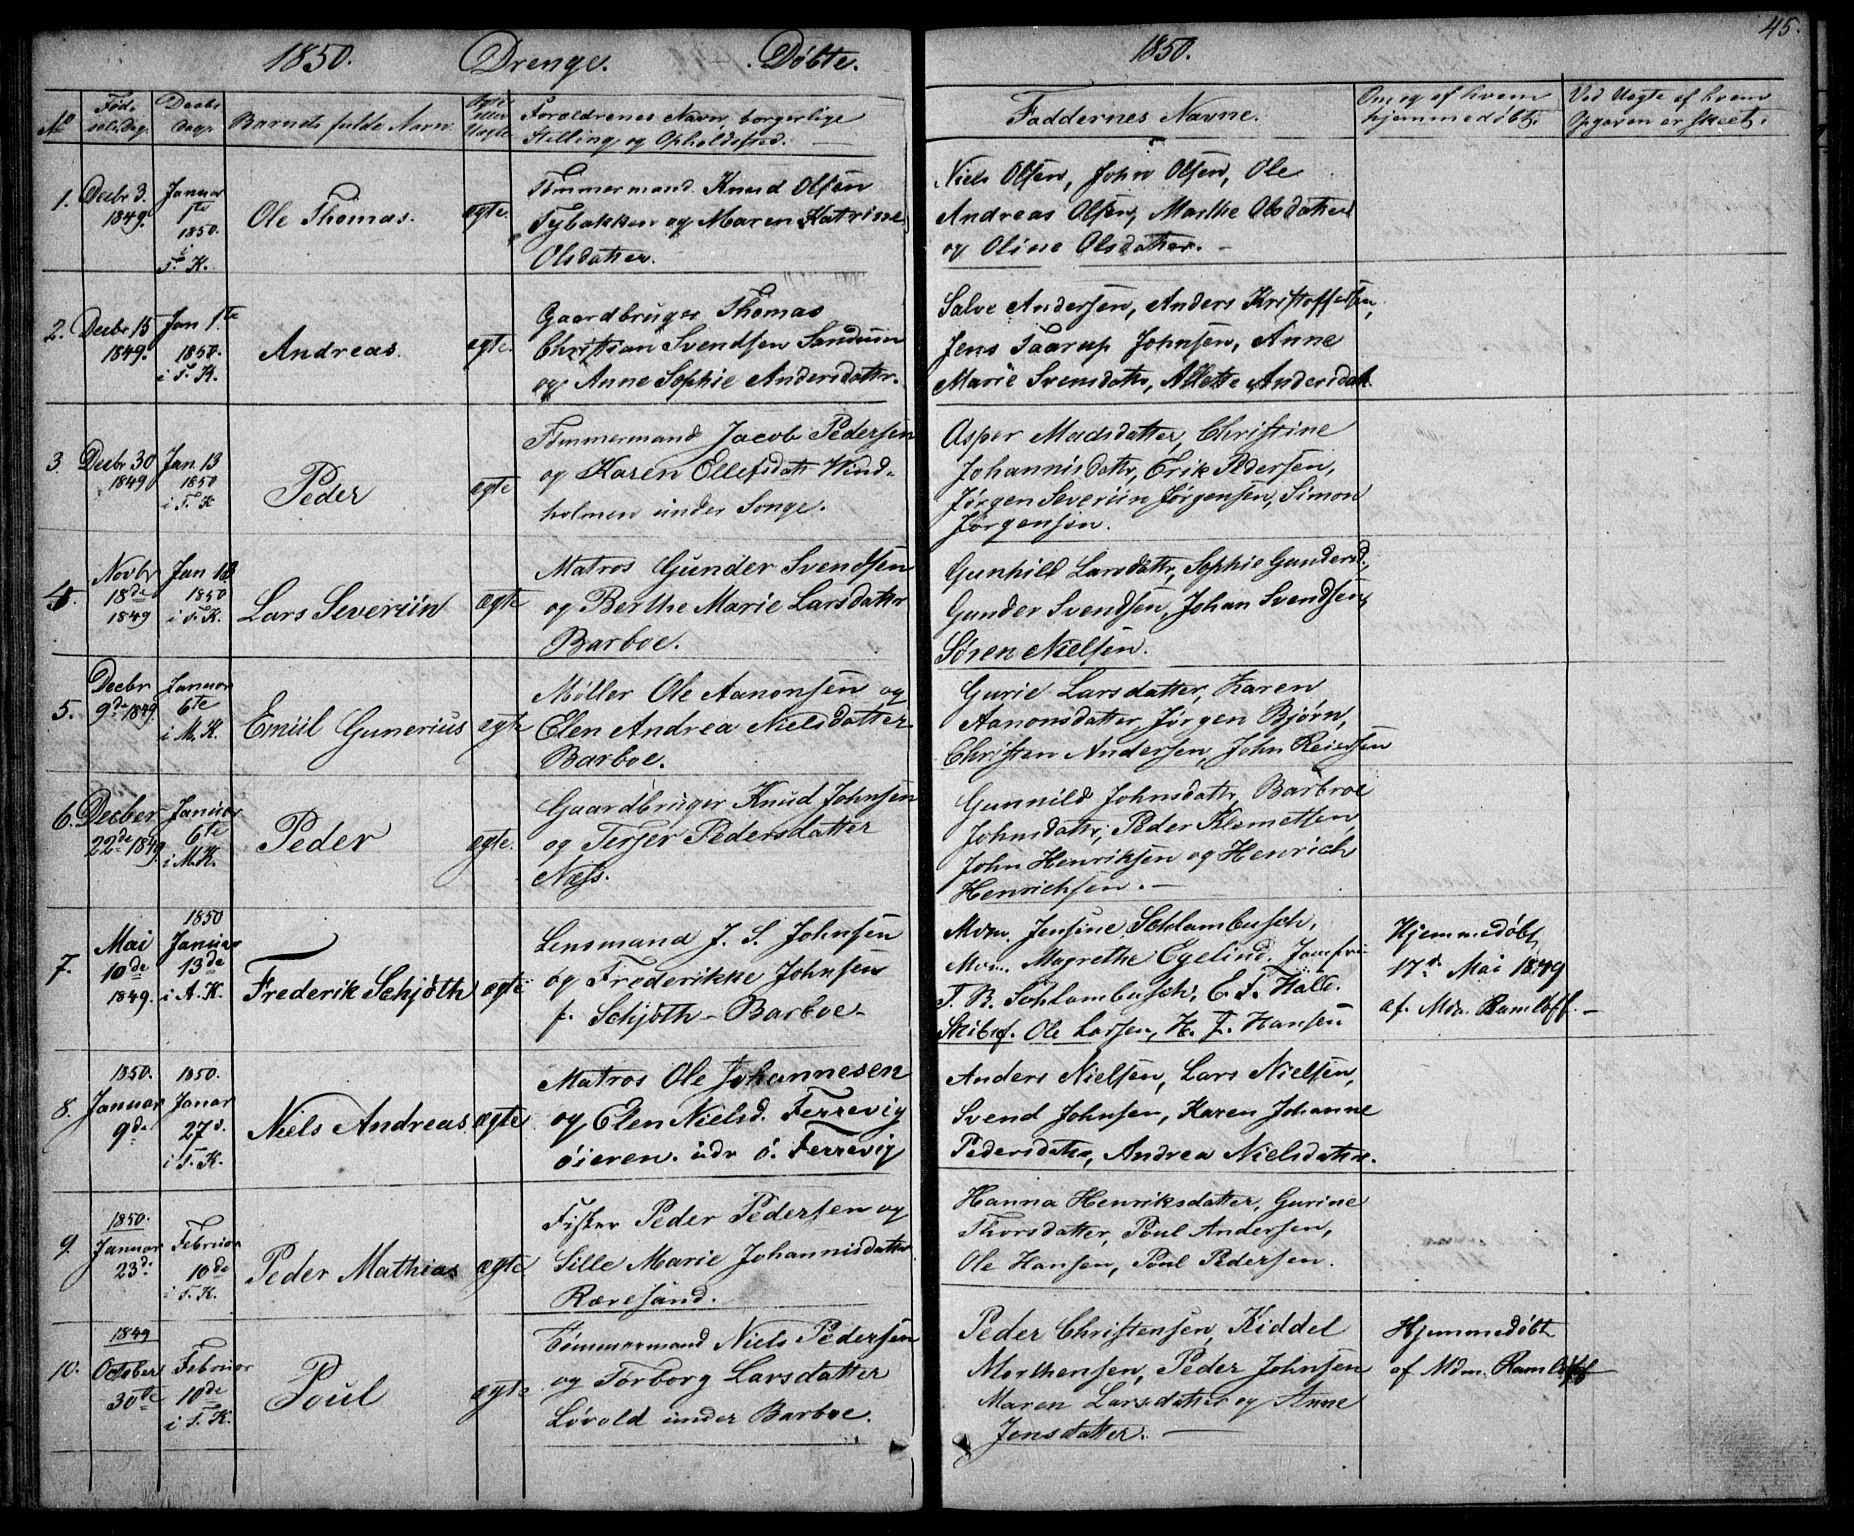 1850. Drenge. Døbte.
No
Fød-
sels Dag.
Daabs
Dag.
Barnets fulde Navn.
Ægte
eller
Uægte
Forældrenes Navn, borgerlige
Stilling og Opholdssted.
1.
Decbr 3.
1849.
Januar
1ste
1850.
i
T. K.
Ole Thomas.
ægte.
Tømmermand Knud Olsen
Tybakken og Maren Katrine
Olsdatter.
2.
Decbr 15
1849.
Jan 1.te
1850.
i T. K.
Andreas.
ægte.
Gaardbruger Thomas
Christian Svendsen Sandum
og Anne Sophie Andersdattr.
3.
Decbr 30
1849
Jan 13
1850
i T. K
Peder
ægte
Tømmermand Jacob Pedersen
og Karen Ellefsdatr Wind-
holmen under Songe.
4.
Novbr
18de
1849
Jan 13
1850
i T. K.
Lars Severiin
ægte
Matros Gunder Svendsen
og Berthe Marie Larsdatter
Barboe.
5.
Decbr
9de 1849.
Januar
6te
i M. K.
Emiil Gunerius
ægte
Møller Ole Aanonsen og
Elen Andrea Nielsdatter
Barboe.
6.
Decber
22de 1849.
Januar
6te
i M. K.
Peder
ægte.
Gaardbruger Knud Johnsen
og Terjer Pedersdatter
Næss.
7.
Mai
10de
1849.
1850
Januar
13de
i A. K.
Frederik Schjøth
ægte
Lensmand J. S. Johnsen
og Frederikke Johnsen
f. Schjøth - Barboe-
8.
1850.
Januar
9de
1850.
Janar
27d.
i T. K.
Niels Andreas.
ægte
Matros Ole Johannesen
og Elen Nielsd. Terrevig
øieren. udr ö. Terrevig
9.
1850.
Januar
23de
Februar
10de
i T. K.
Peder Mathias
ægte.
Fisker Peder Pedersen og
Sille Marie Johannisdatter
Rævesand.
10.
1849
October
30te
Februar
10de
i T. K.
Poul
ægte.
Tømmermand Niels Pedersen
og Torborg Larsdatter
Løvold under Barboe.
45.
1850.
Faddernes Navne.
Om og af hvem
hjemmedøbt.
Ved Uægte af hvem
Opgaven er skeet.
Niels Olsen, John Olsen, Ole
Andreas Olsen, Marthe Olsdatter
og Oline Olsdatter. -
Salve Andersen, Anders Kristoffersen,
Jens Taarup Johnsen, Anne
Marie Svensdatr, Allette Andersdat.
Asper Madsdatter, Christine
Johannisdatr, Erik Pedersen,
Jørgen Severiin Jørgensen, Simon
Jørgensen.
Gunhild Larsdatr, Sophie Gundersd.,
Gunder Svendsen, Johan Svendsen,
Søren Nielsen.
Gurie Larsdatter, Karen
Aanonsdatter, Jørgen Bjørn,
Christen Andersen, John Reiersen
Gunnild Johnsdatr, Barbroe
Johnsdatr, Peder Klemetsen
John Henriksen og Henrich
Henrichsen. -
Mdm. Jensine Schlambusch,
Mdm. Magrethe Egelund, Jomfru
T. B. Schlambusch, E. F. Hall.
Skibsf. Ole Larsen, H. T. Hansen
Hjemmedøbt
17d. Mai 1849
af Mdm. Ramloff. -
Anders Nielsen, Lars Nielsen,
Svend Johnsen, Karen Johanne
Pedersdatr, Andrea Nielsdatter.
Hanna Henriksdatter, Gurine
Thorsdatter, Poul Andersen,
Ole Hansen, Poul Pedersen.
Peder Christensen, Kiddel
Morthensen, Peder Johnsen
Maren Larsdatter og Anne
Jensdatter. -
Hjemmedøbt
af Mdm. Ramloff